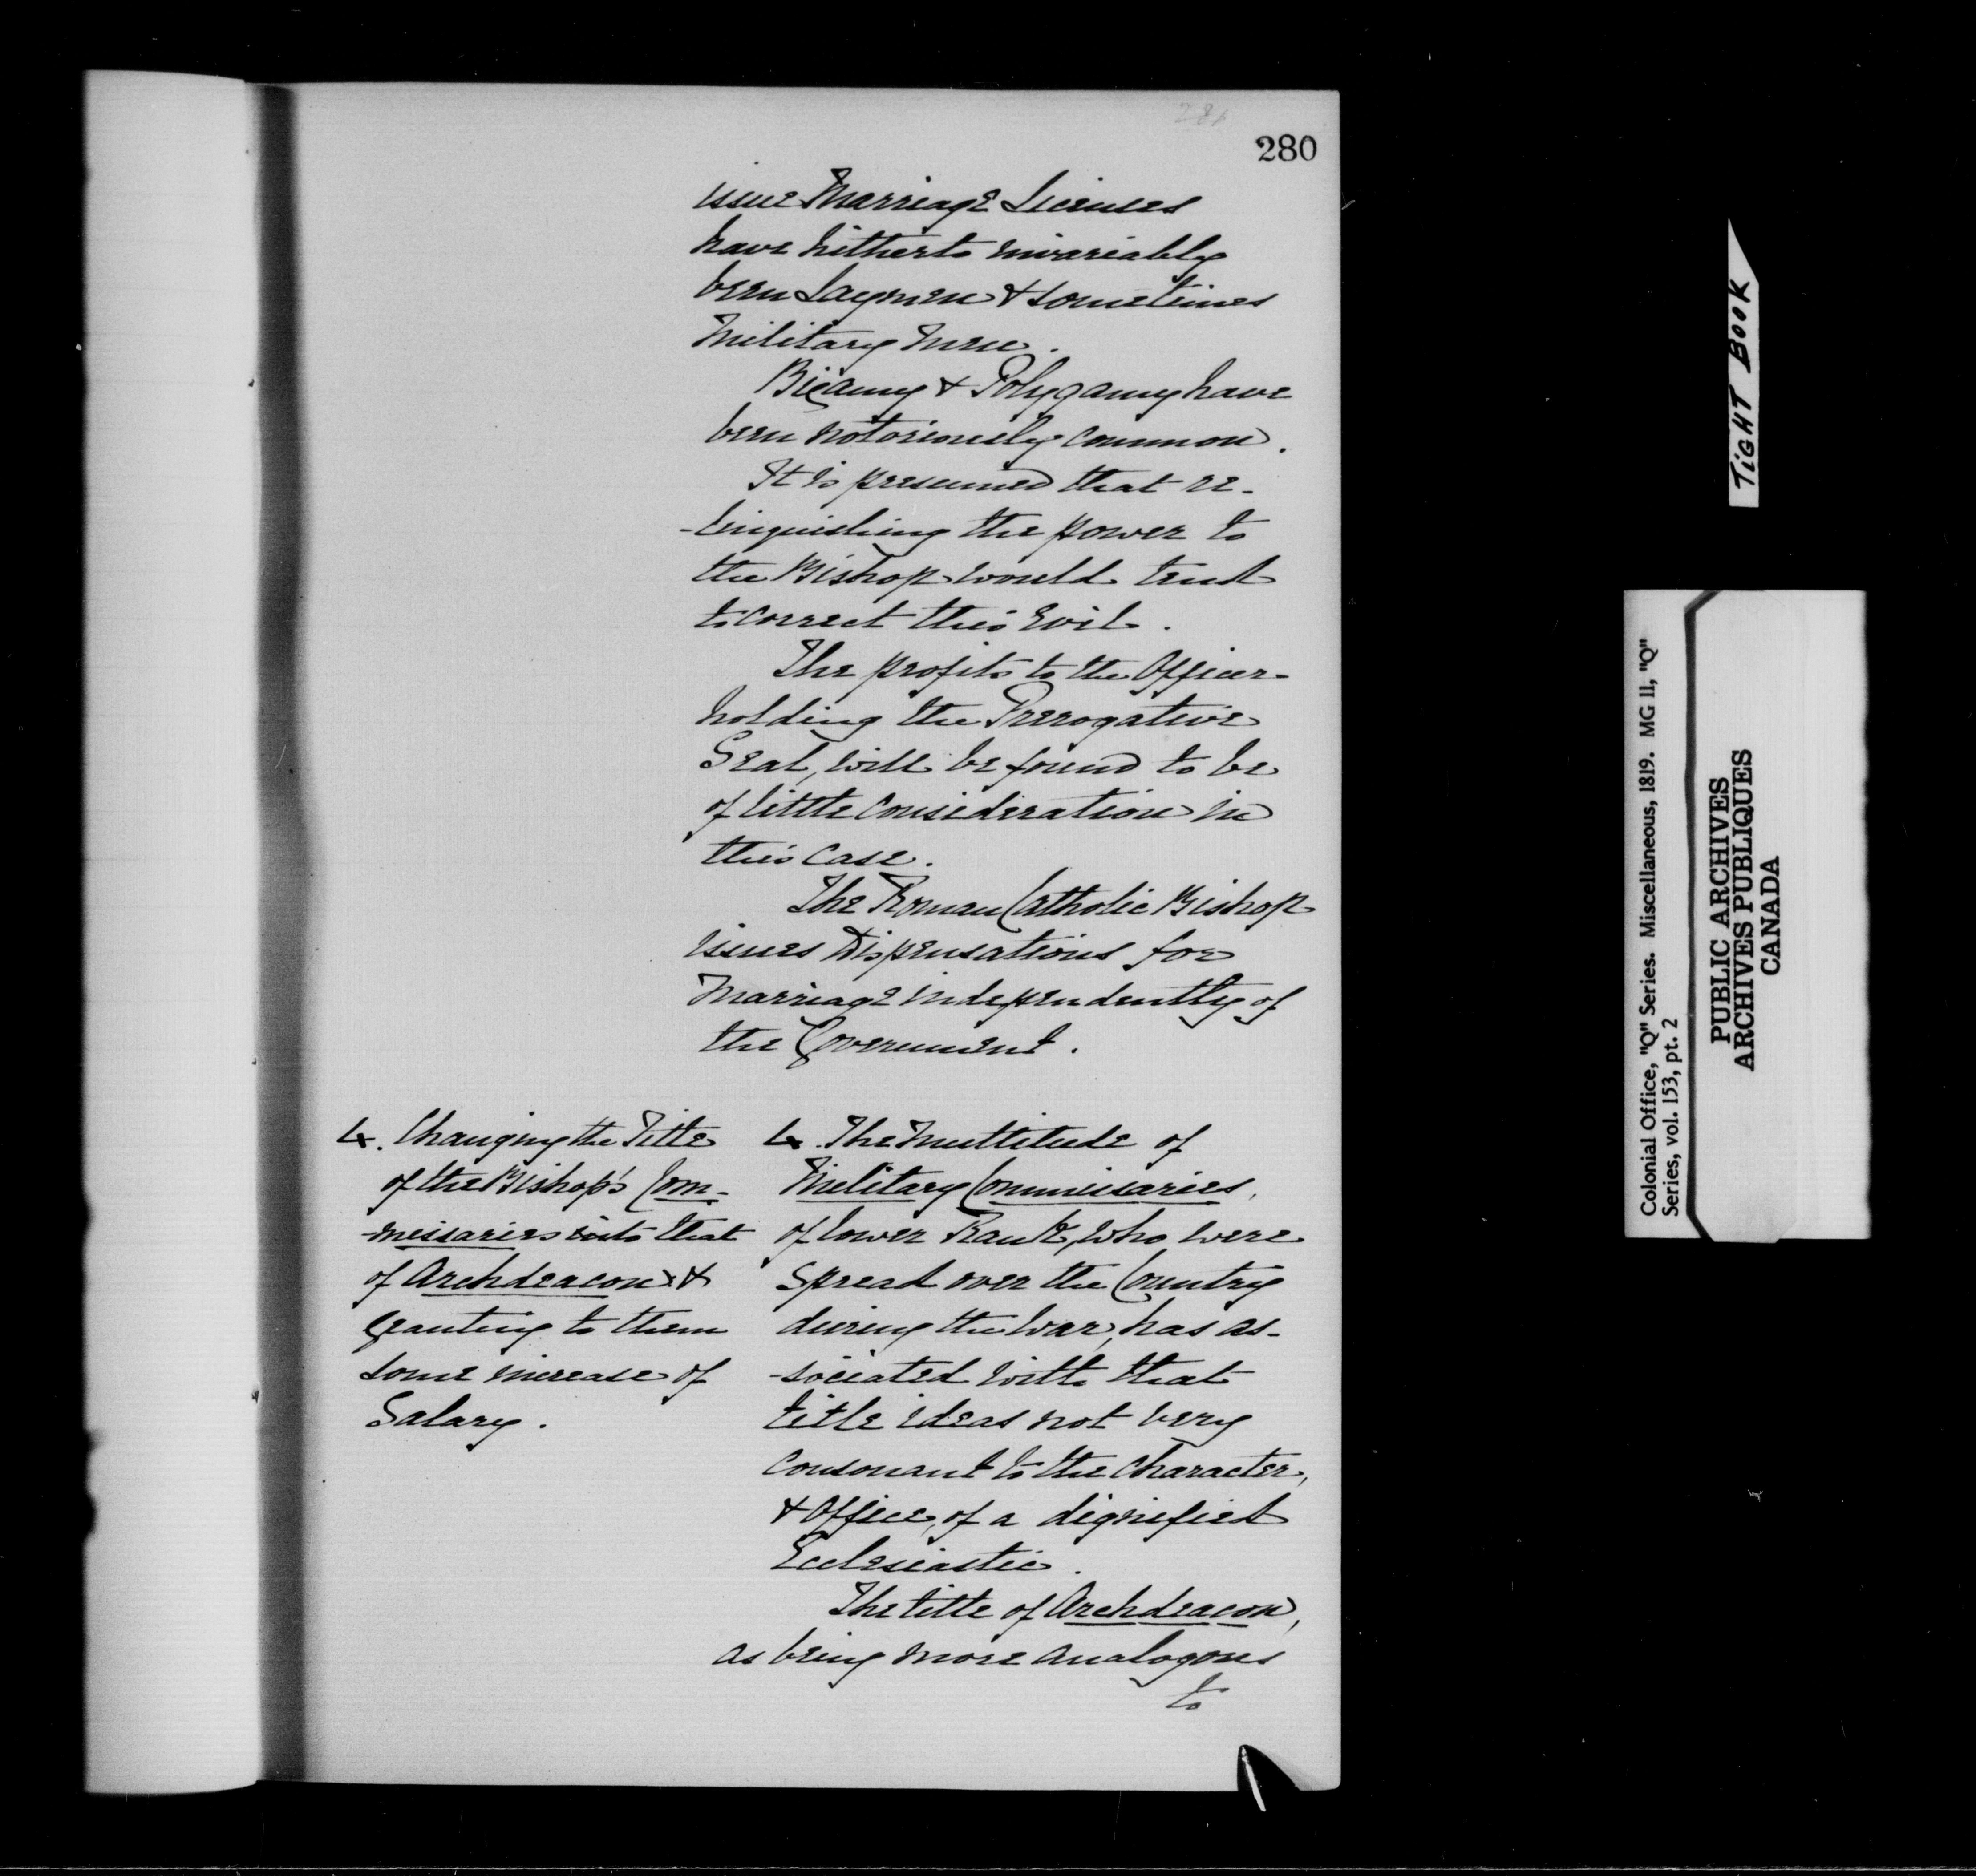 280
issue Marriage Licenses
have hitherto invariably
been Laymen & sometimes
Military Men.
Bigamy & Polygamy have
been notoriously common.
It is presumed that re-
-linquishing the power to
the Bishop would tend
to correct this Evil.
The profits to the Officer
holding the Prerogative
Seal, will be found to be
of little consideration in
this case.
The Roman Catholic Bishop
issues Dispensations for
Marriage independently of
the Government.
4. Changing the Title
of the Bishop's Com-
-missaries into that
of Archdeacon &
granting to them
some increase of
Salary.
4. The Multitude of
Military Commissaries,
of lower Rank, who were
spread over the Country
during the War, has as-
-sociated with that
title ideas not very
consonant to the Character,
& Office, of a dignified
Ecclesiastic.
The title of Archdeacon,
as being more analogous
to
TIGHT BOOK
Colonial Office, "Q" Series. Miscellaneous, 1819. MG 11, "Q"
Series, vol. 153, pt. 2
PUBLIC ARCHIVES
ARCHIVES PUBLIQUES
CANADA